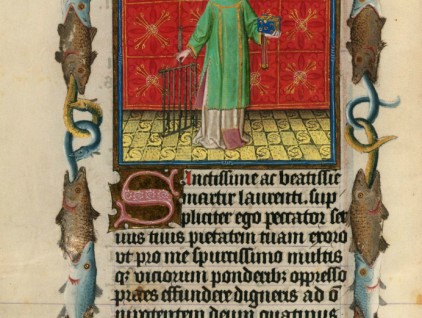 Sanctissime ac beatissie
martir laurenti. sup
pliciter ego peccator ser
uus tuus pietatem tuam exoro
vt pro me spurcissimo multis
q; viciorum ponderibz oppresso
praes effundere digneris ad o
nipotentem deum quatinus